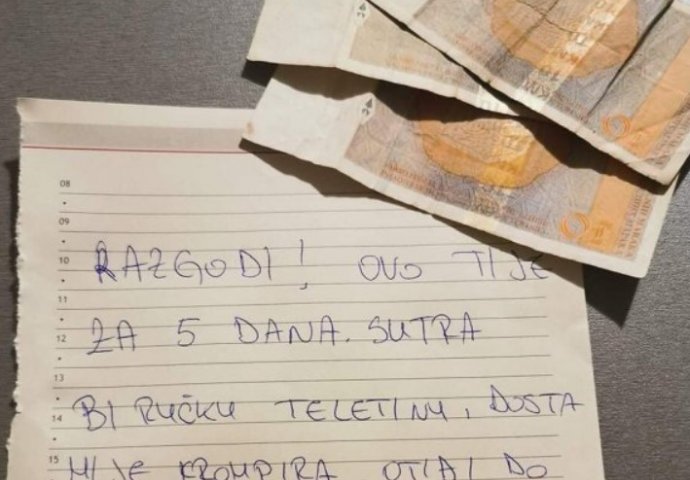 08
09
10 RAZGODI! OVO TI JE
11
12 ZA 5 DANA. SUTRA
13
14 BI RUČKU TELETINU, DOSTA
15 MI JE KROMPIRA OTIĐI DO